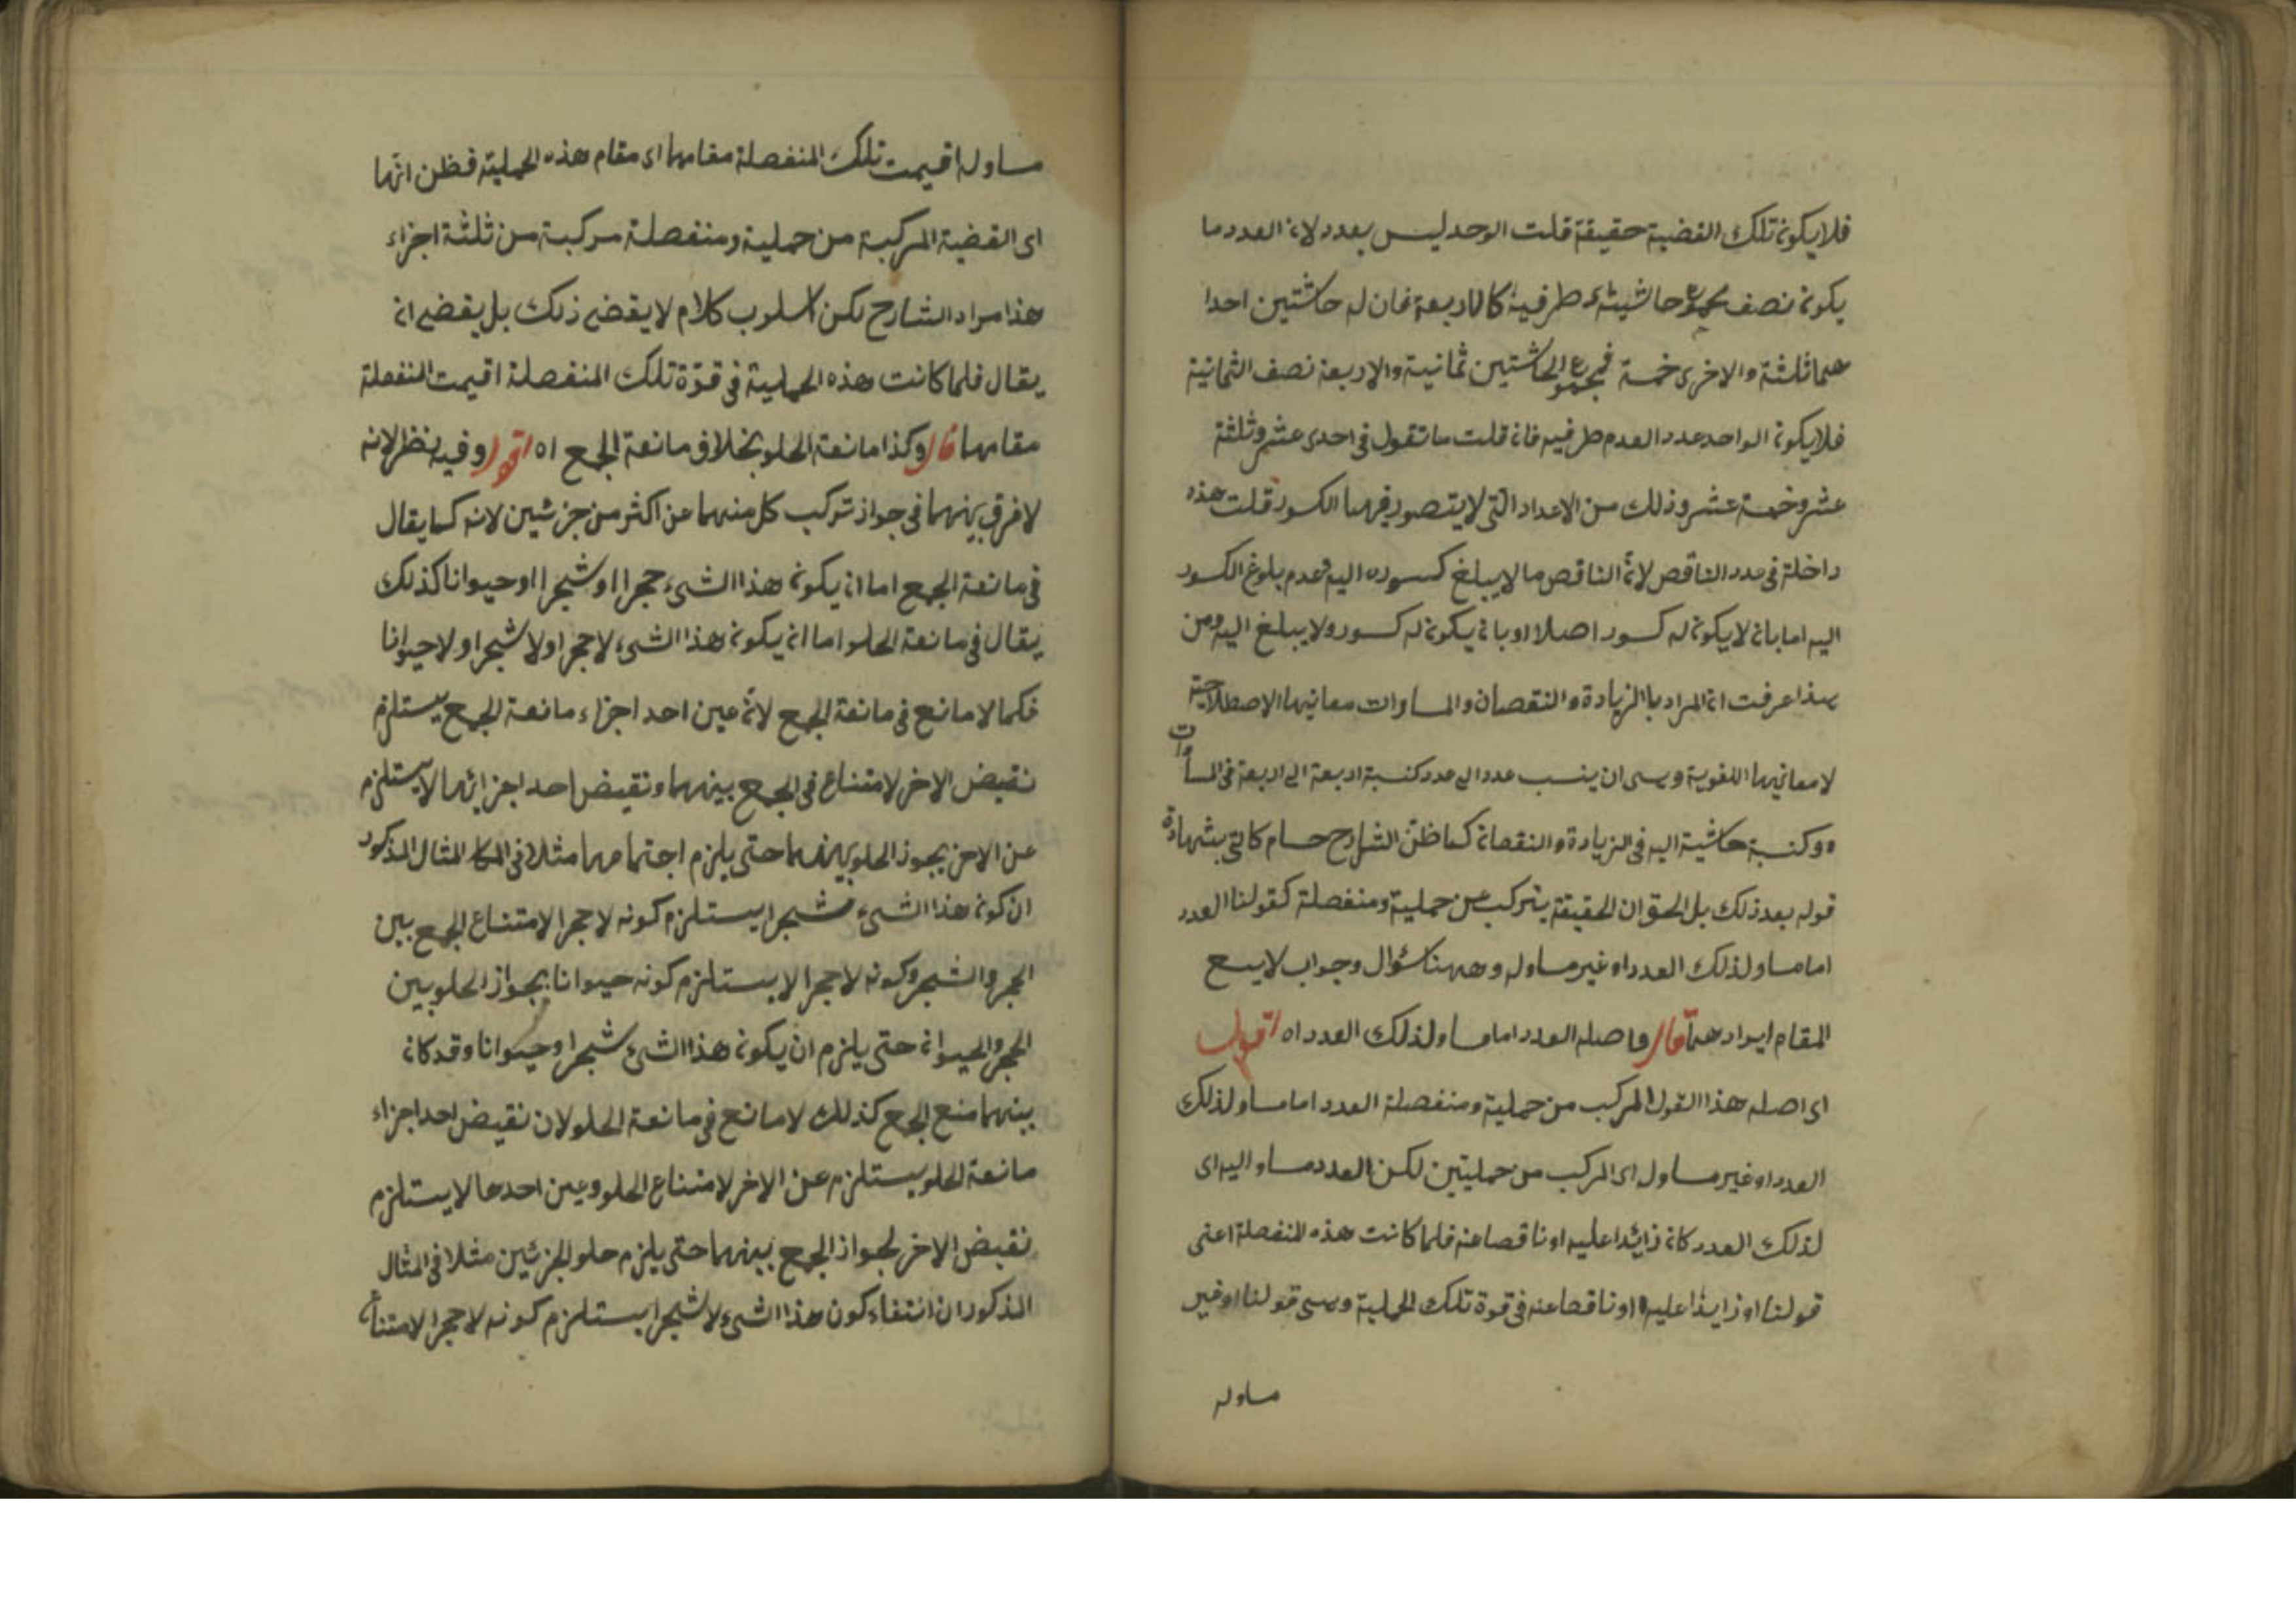 فلا يكون تلك القضية حقيقة قلت الوحد ليس بعدد لان العدد ما
يكون نصف مجموع حاشيتئ طرفيه كالاربعة فان له حاشتين احدا
هما ثلثة والاخرى خمسة فمجموع الحاشتين ثمانية والاربعة نصف الثمانية
فلا يكون الواحد عدد العدم طرفيه فان قلت ما تقول في احدى عشر وثلثة
عشر وخمسة عشر وذلك من الاعداد التى لا يتصور فيهما الكسور قلت هذه
داخلة في عدد الناقص لانّ الناقص ما لا يبلغ كسوره اليه وعدم بلوغ الكسور
اليه اما بان لا يكون له كسور اصلا او بان يكون له كسور ولا يبلغ اليه ومن
هذا عرفت ان المراد با الزيادة والنقصان والمساوات معانيها الاصطلاحية
لا معانيها اللغوية وهى ان ينسب عدد الى عدد كنسبة اربعة الى اربعة فى المساوات
وكنسبة حاشية اليه فى الزيادة والنقصان كما ظنّ الشارح حسام كاتى بشهادة
قوله بعد ذلك بل الحق ان الحقيقة يتركب من حملية ومنفصلة كقولنا العدد
اما مساو لذلك العدد او غير مساو له وههنا سؤال وجواب لا يسع
المقام ايراد هما قال واصله العدد اما مساو لذلك العدد اه اقول
اى اصله هذا القول المركب من حملية ومنفصلة العدد اما مساو لذلك
العدد او غير مساو له اى المركب من حمليتين لكن العدد مساو اليه اى
لذلك العدد كان زائدا عليه او ناقصا عنه فلما كانت هذه المنفصلة اعنى
قولنا او زايدا عليه او ناقصا عنه فى قوة تلك الحملية وهى قولنا او غير
مساو له
مساو له اقيمت تلك المنفصلة مقامها اى مقام هذه الحملية فظن انّها
اى القضية المركبة من حملية ومنفصلة مركبة من ثلثة اجزاء
هذا مراد الشارح لكن اسلوب كلام لا يقضى ذلك بل يقضى ان
يقال فلما كانت هذه الحملية فى قوّة تلك المنفصلة اقيمت المنفصلة
مقامها قال وكذا مانعة الخلو بخلاف مانعة الجمع اه اقول وفيه نظر لانه
لا فرق بينهما فى جواز تركب كل منهما عن اكثر من جزئين لانه كما يقال
فى مانعة الجمع اما ان يكون هذا الشىء حجرا او شجرا او حيوانا كذلك
يقال فى مانعة الخلو اما ان يكون هذا الشىء لا حجرا ولا شجرا ولا حيوانا
فكما لا مانع فى مانعة الجمع لانّ عين احد اجزاء مانعة الجمع يستلزم
نقيض الاخر لامتناع فى الجمع بينهما ونقيض احد اجزائها لا يستلزم
عين الاخر بجواز الخلو بينهما حتى يلزم اجتماعهما مثلا فى المثال المذكور
ان كون هذا الشىء شجرا يستلزم كونه لا حجرا لامتناع الجمع بين
الحجر والشجر وكونه لا حجرا لا يستلزم كونه حيوانا بجواز الخلو بين
الحجر والحيوان حتى يلزم ان يكون هذا الشىء شجرا وحيوانا وقد كان
بينهما منع الجمع كذلك لا مانع فى مانعة الخلو لان نقيض احد اجزاء
مانعة الخلو يستلزم عين الاخر لامتناع الخلو وعين احدها لا يستلزم
نقيض الاخر لجواز الجمع بينهما حتى يلزم خلو الجزئين مثلا فى المثال
المذكور ان انتفاء كون هذا الشىء لا شجرا يستلزم كونه لا حجرا لامتناع